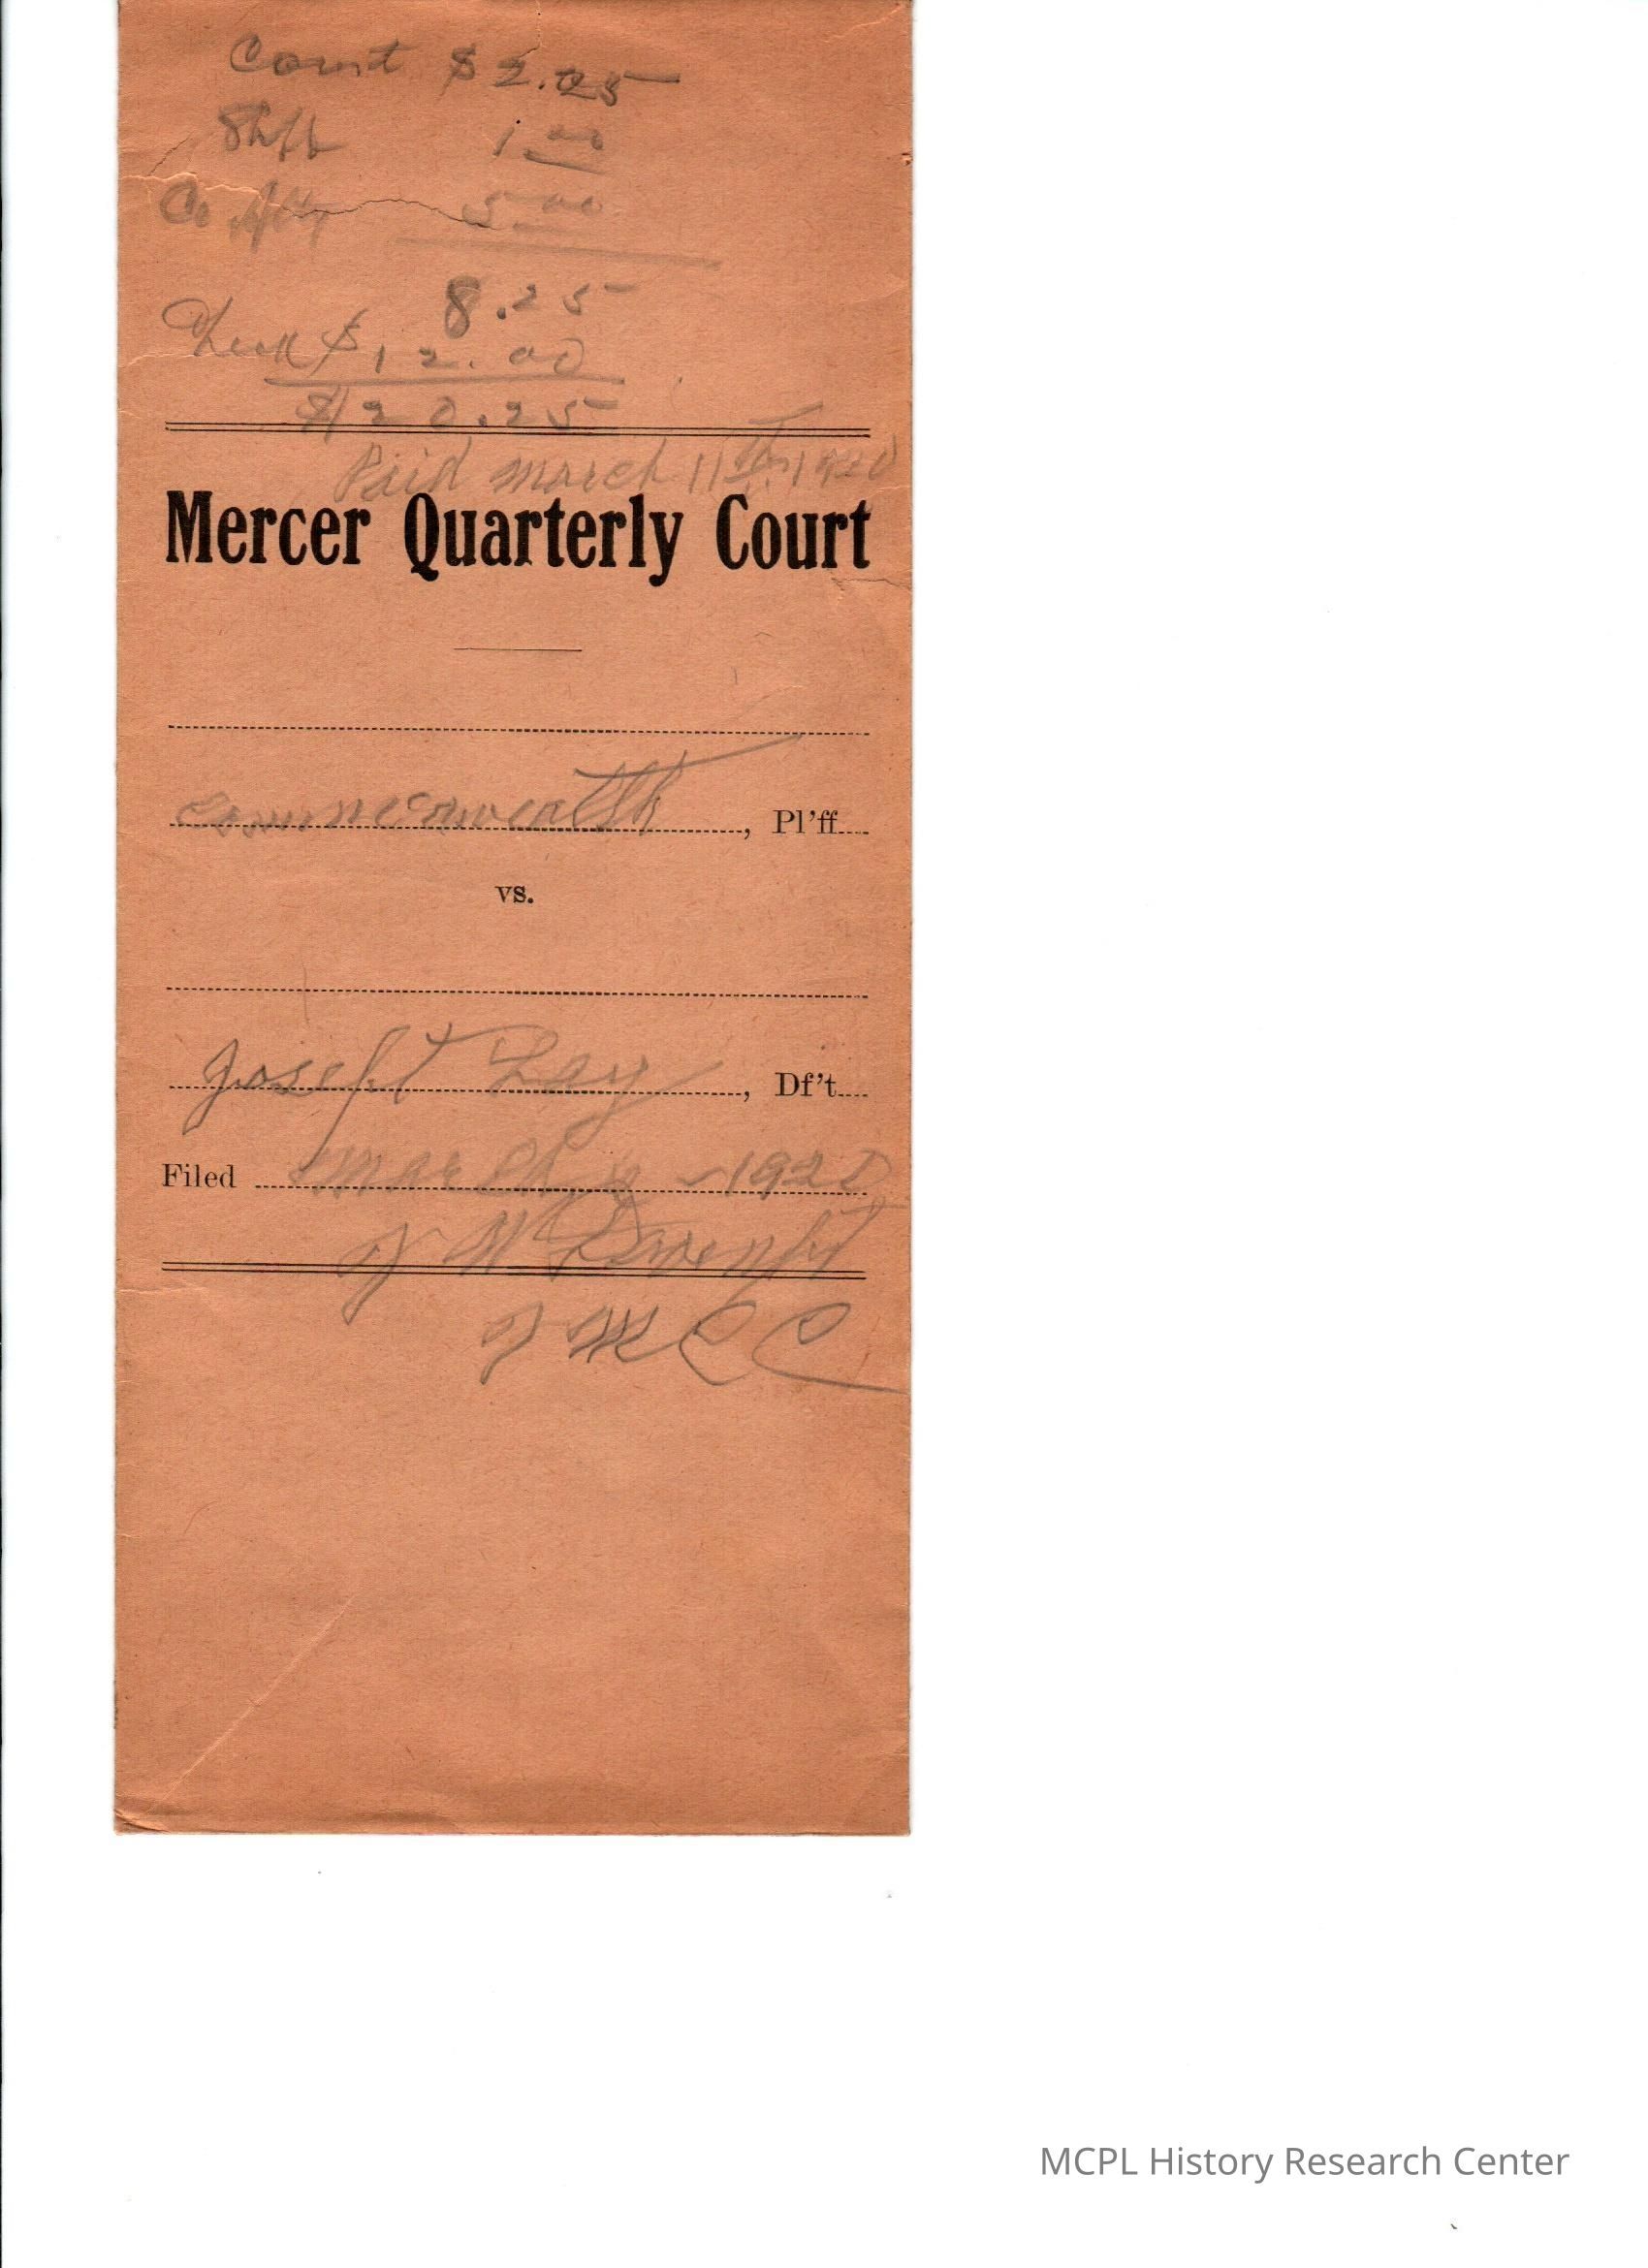 Court $2.25
Shff 1.00
Co Atty 5.00
8.25
$12.00
$20.25
Paid march 11th 1920
Mercer Quarterly Court
Commonwealth, Pl'ff
vs.
Joseph Lay, Df't
Filed March 1920
MCPL History Research Center